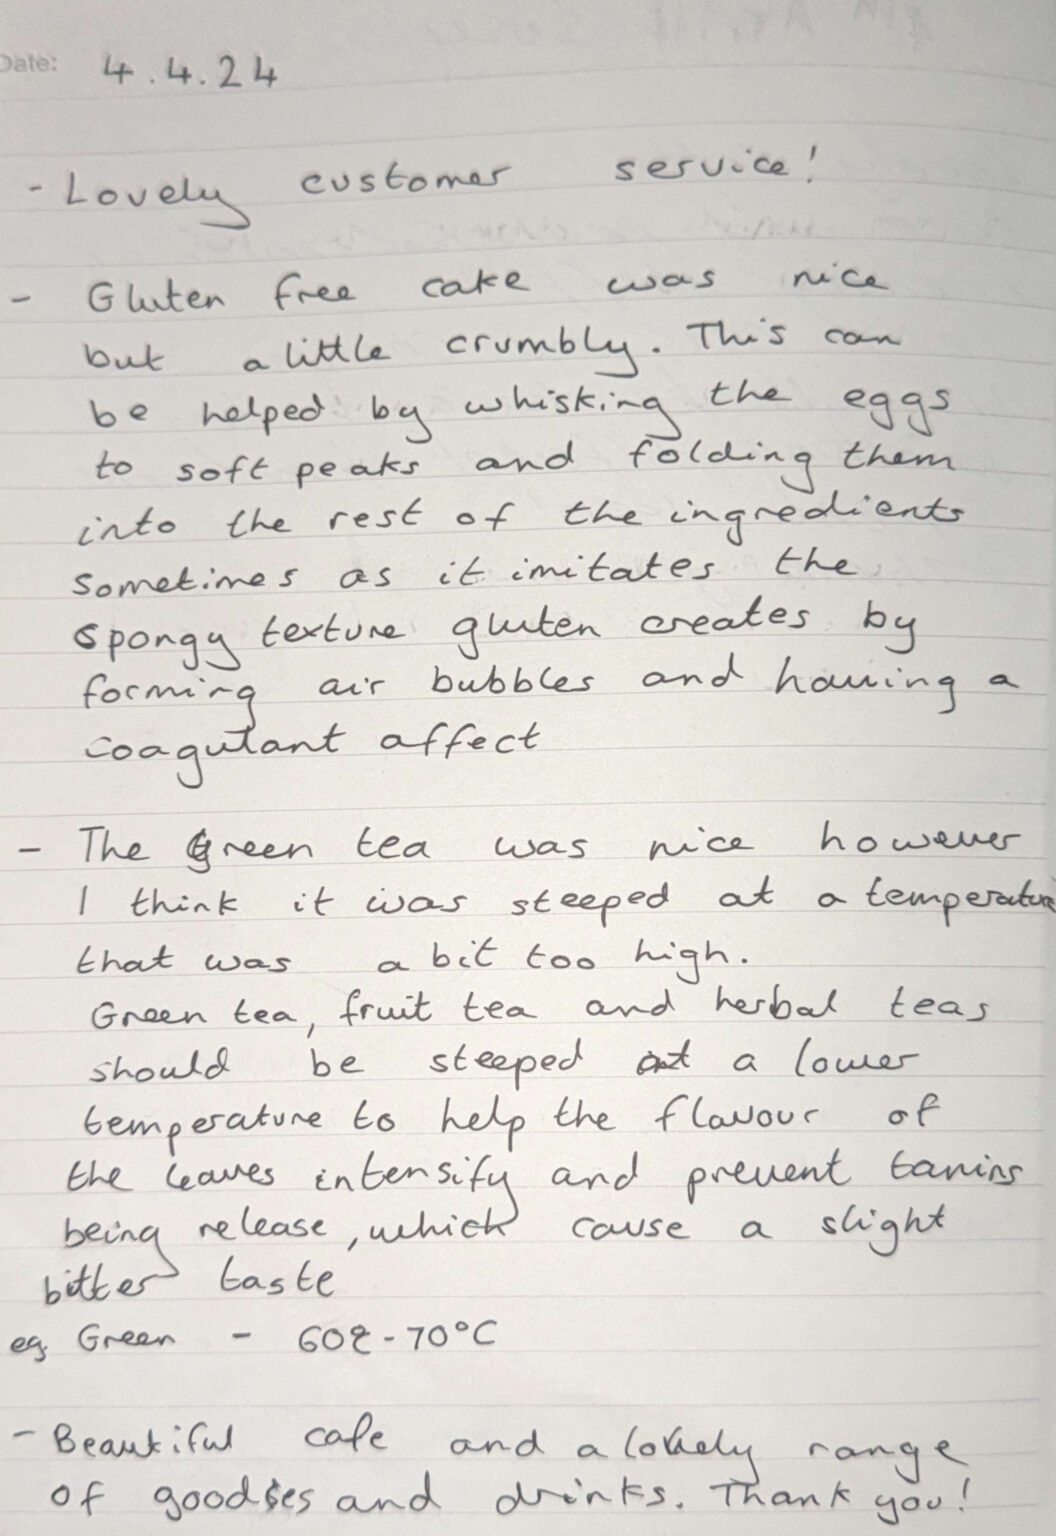 Date: 4.4.24
- Lovely customer service!
- Gluten free cake was nice
but a little crumbly. This can
be helped by whisking the eggs
to soft peaks and folding them
into the rest of the ingredients
sometimes as it imitates the
spongy texture gluten creates by
forming air bubbles and having a
coagulant affect
- The Green tea was nice however
I think it was steeped at a temperature
that was a bit too high.
Green tea, fruit tea and herbal teas
should be steeped at a lower
temperature to help the flavour of
the leaves intensify and prevent tanins
being release, which cause a slight
bitter taste
eg. Green - 60-70°C
- Beautiful cafe and a lovely range
of goodies and drinks. Thank you!